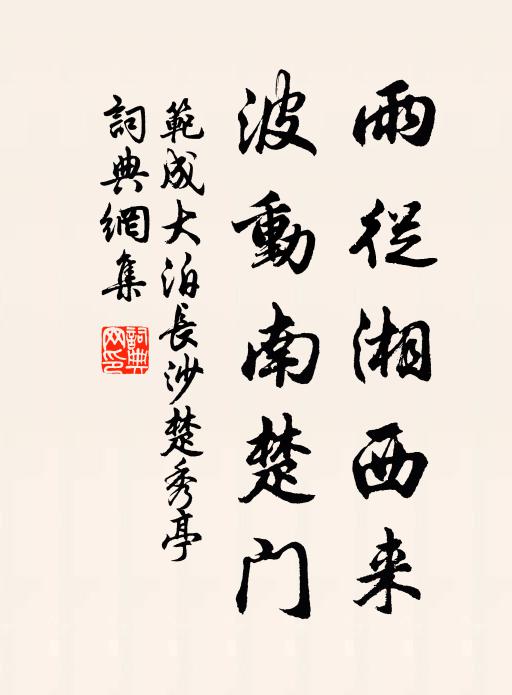 雨從湘西来
波動南楚門
範成大泊長沙楚秀亭
詞典網集
詞典網印